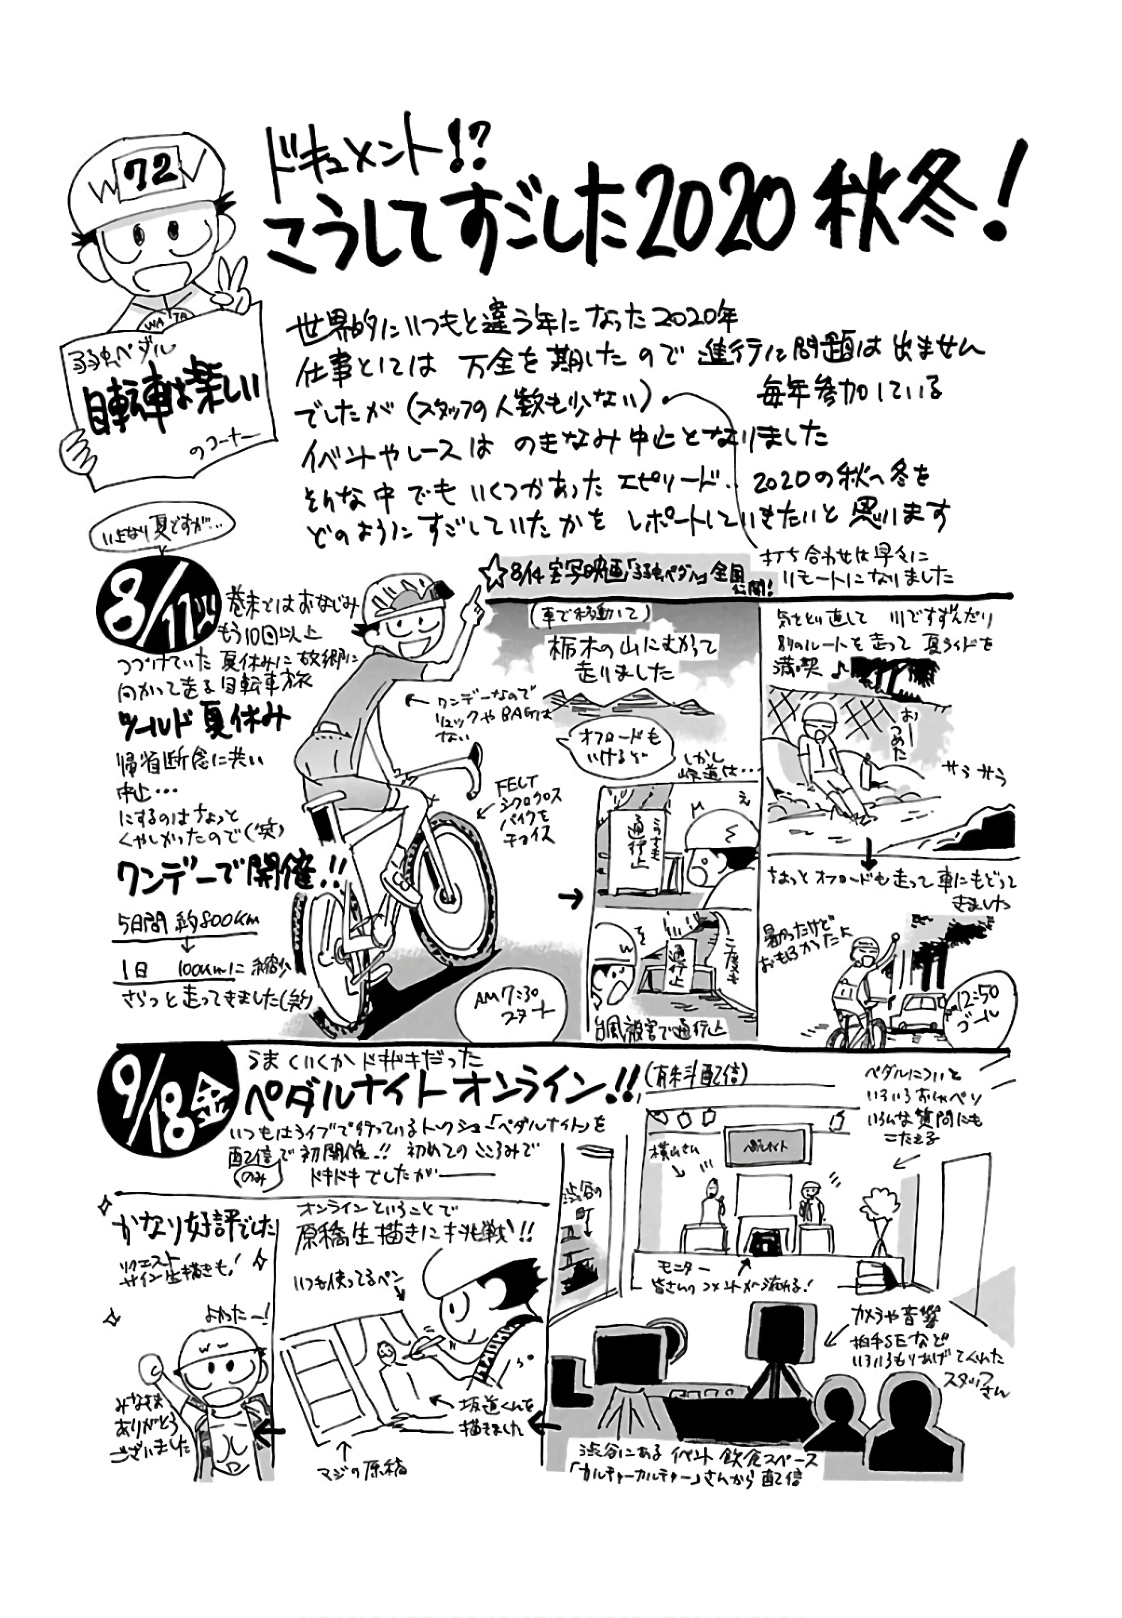 72
WATA
弱虫ペダル
自転車は楽しい
のコーナー
ドキュメント!?
こうしてすごした2020秋冬!
世界的にいつもと違う年になった2020年
仕事としては 万全を期したので進行に問題は出ません
でしたが(スタッフの人数も少ない) 毎年参加している
イベントやレースは のきなみ中止となりました
そんな中でも いくつかあったエピソード‥ 2020の秋へ冬を
どのようにすごしていたかを レポートしていきたいと思います
打ち合わせは早々に
リモートになりました
いきなり夏ですが…
8/11火
巻末ではおなじみ
もう10回以上
つづけていた 夏休みに故郷に
向かって走る自転車旅
ツールド夏休み
帰省断念に伴い
中止…
にするのはちょっと
くやしかったので(笑)
ワンデーで開催!!
5日間 約800km
↓
1日 100kmに縮小
さらっと走ってきました(笑)
☆8/14実写映画「弱虫ペダル」全国
公開!
←ワンデーなので
リュックやBAGは
ない
FELT
シクロクロス
バイクを
チョイス
AM7:30
スタート
(車で移動して)
栃木の山にむかって
走りました
オフロードも
いけるぞ
しかし
峠道は…
このさき
通行止
え
二度も
通行止
台風被害で通行止
気をとり直して 川ですずんだり
別のルートを走って 夏ライドを
満喫♪
おー
つめた
サラサラ
ちょっとオフロードも走って車にもどって
きました
暑かったけど
おもろかったよ
12:50
ゴール
9/18金
うまくいくかドキドキだった
ペダルナイトオンライン!!(有料配信)
いつもはライブで行っているトークショー「ペダルナイト」を
配信で初開催!! 初めてのこころみで
のみ
ドキドキでしたが——
ペダルについて
いろいろおしゃべり
いろんな質問にも
こたえる
横山さん
ペダルナイト
渋谷の
町
モニター
皆さんのコメントが流れる!
カメラや音響
拍手SEなど
いろいろもりあげてくれた
スタッフさん
渋谷にあるイベント飲食スペース
「カルチャーカルチャー」さんから配信
オンラインということで
原稿生描きに挑戦!!
いつも使ってるペン
坂道くんを
描きました
マジの原稿
かなり好評でした
リクエスト
サイン生描きも!
よかったー!
みなさま
ありがとう
ございました